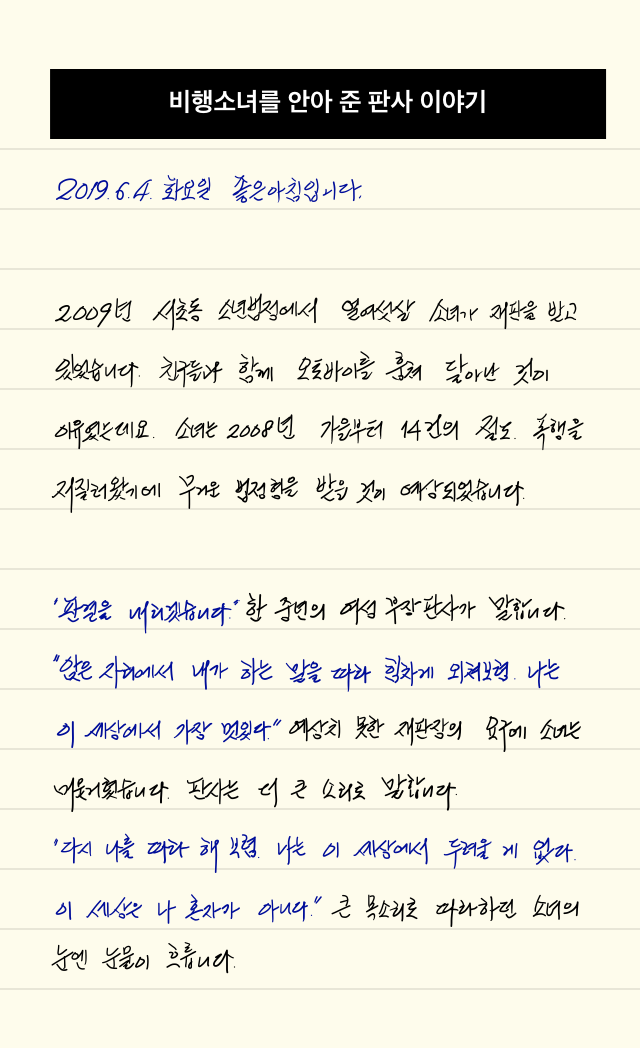 비행소녀를 안아 준 판사 이야기
2019. 6. 4. 화요일 좋은아침입니다.
2009년 서초동 소년법정에서 열여섯살 소녀가 재판을 받고
있었습니다. 친구들과 함께 오토바이를 훔쳐 달아난 것이
이유였는데요. 소녀는 2008년 가을부터 14건의 절도. 폭행을
저질러왔기에 무거운 법정형을 받을 것이 예상되었습니다.
"판결을 내리겠습니다." 한 중년의 여성 부장판사가 말합니다.
"앉은 자리에서 내가 하는 말을 따라 힘차게 외쳐보렴. 나는
이 세상에서 가장 멋있다." 예상치 못한 재판장의 요구에 소녀는
머뭇거렸습니다. 판사는 더 큰 소리로 말합니다.
"다시 나를 따라 해 보렴. 나는 이 세상에서 두려울 게 없다.
이 세상은 나 혼자가 아니다." 큰 목소리로 따라하던 소녀의
눈엔 눈물이 흐릅니다.